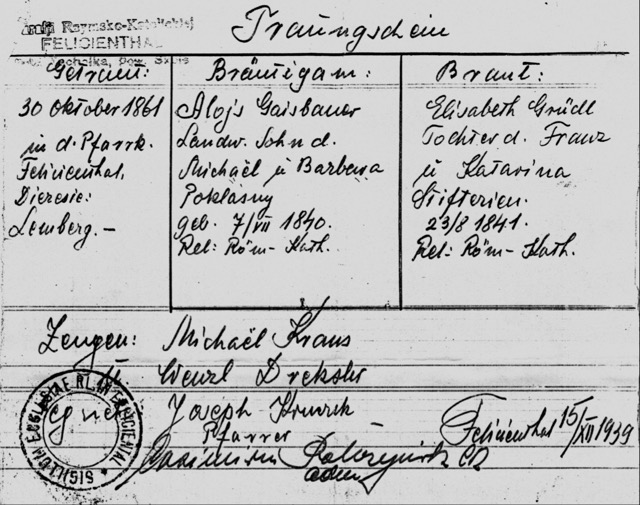 Rzymsko-Katolickiej
FELICIENTHAL
Traungschein
Getraut:
30 Oktober 1861
in d. Pfarrk.
Felicienthal,
Diezesie:
Lemberg.-
Bräutigam:
Alojs Gaisbauer
Landw. Sohn d.
Michaël u Barbara
Poklasny
geb. 7/VII 1840.
Rel: Röm-Kath.
Braut:
Elisabeth Grüdl
Tochter d. Franz
u Katarina
Stifterien.
23/8 1841.
Rel: Röm-Kath.
Zeugen: Michaël Kraus
Wenzl Dreksler
Joseph
Pfarrer
Felicienthal 15/XII 1939